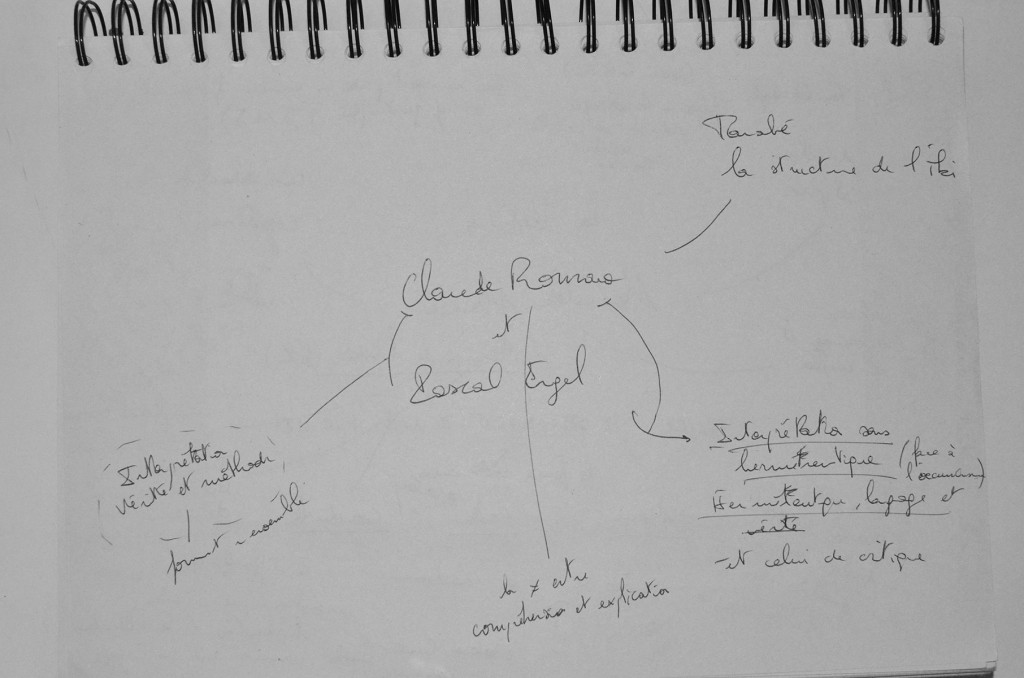 la structure de l'Iki
Claude Romano
et
Pascal Engel
Interprétation
vérité et méthode
format
Interprétation sans
herméneutique (face à
Herméneutique, langage et
vérité
- et celui de critique
la ≠ entre
compréhension et explication